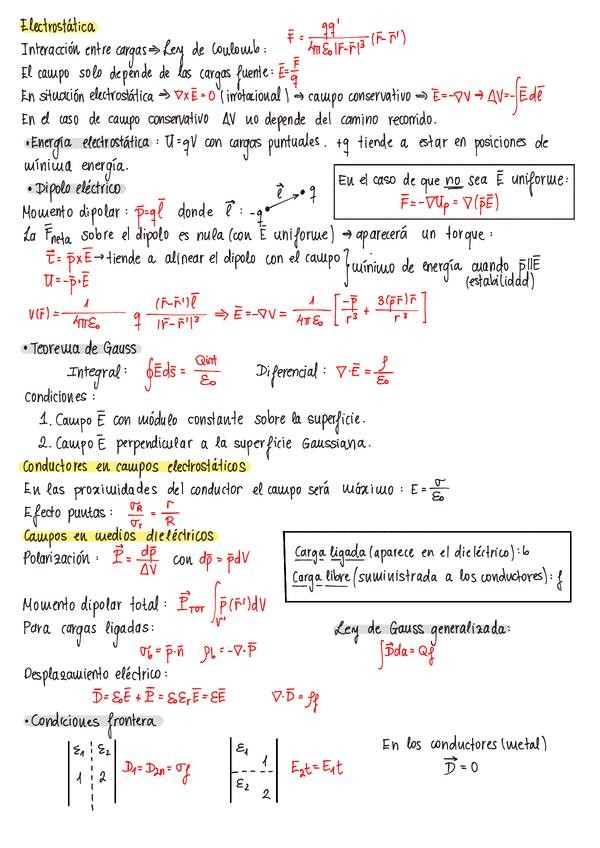 Electrostática
F̄ = qq' / 4πε₀|r̄-r̄'|³ (r̄-r̄')
Interacción entre cargas ⇒ Ley de Coulomb:
El campo solo depende de las cargas fuente: Ē = F̄/q
En situación electrostática → ∇×Ē=0 (irrotacional) → campo conservativo → Ē=-∇V → ΔV=-∫Ēdl̄
En el caso de campo conservativo ΔV no depende del camino recorrido.
• Energía electrostática: U=qV con cargas puntuales. +q tiende a estar en posiciones de
mínima energía.
• Dipolo eléctrico
Momento dipolar: p̄=ql̄ donde l⃗: -q l⃗ q
En el caso de que no sea Ē uniforme:
F̄=-∇Up = ∇(p̄Ē)
La F̄neta sobre el dipolo es nula (con Ē uniforme) → aparecerá un torque:
τ̄ = p̄×Ē → tiende a alinear el dipolo con el campo } mínimo de energía cuando p̄∥Ē
U=-p̄·Ē (estabilidad)
V(r̄) = 1/4πε₀ q (r̄-r̄')l̄ / |r̄-r̄'|³ ⇒ Ē=-∇V = 1/4πε₀ [-p̄/r³ + 3(p̄r̄)r̄/r³]
• Teorema de Gauss
Integral: ∮Ēds̄ = Qint/ε₀ Diferencial: ∇·Ē = ρ/ε₀
Condiciones:
1. Campo Ē con módulo constante sobre la superficie.
2. Campo Ē perpendicular a la superficie Gaussiana.
Conductores en campos electrostáticos
En las proximidades del conductor el campo será máximo: E = σ/ε₀
Efecto puntas: σR/σr = r/R
Campos en medios dieléctricos
Polarización: P̄ = dp̄/ΔV con dp̄ = p̄dV
Carga ligada (aparece en el dieléctrico): b
Carga libre (suministrada a los conductores): f
Momento dipolar total: P̄TOT ∫V' p̄(r̄')dV
Para cargas ligadas:
σb = p̄·n̄ ρb = -∇·P̄
Ley de Gauss generalizada:
∫D̄da = Qf
Desplazamiento eléctrico:
D̄ = ε₀Ē + P̄ = ε₀εrĒ = εĒ ∇·D̄ = ρf
• Condiciones frontera
ε₁ ε₂ 1 2 D₁=D₂n=σf
ε₁ 1 ε₂ 2 E₂t=E₁t
En los conductores (metal)
D⃗ = 0